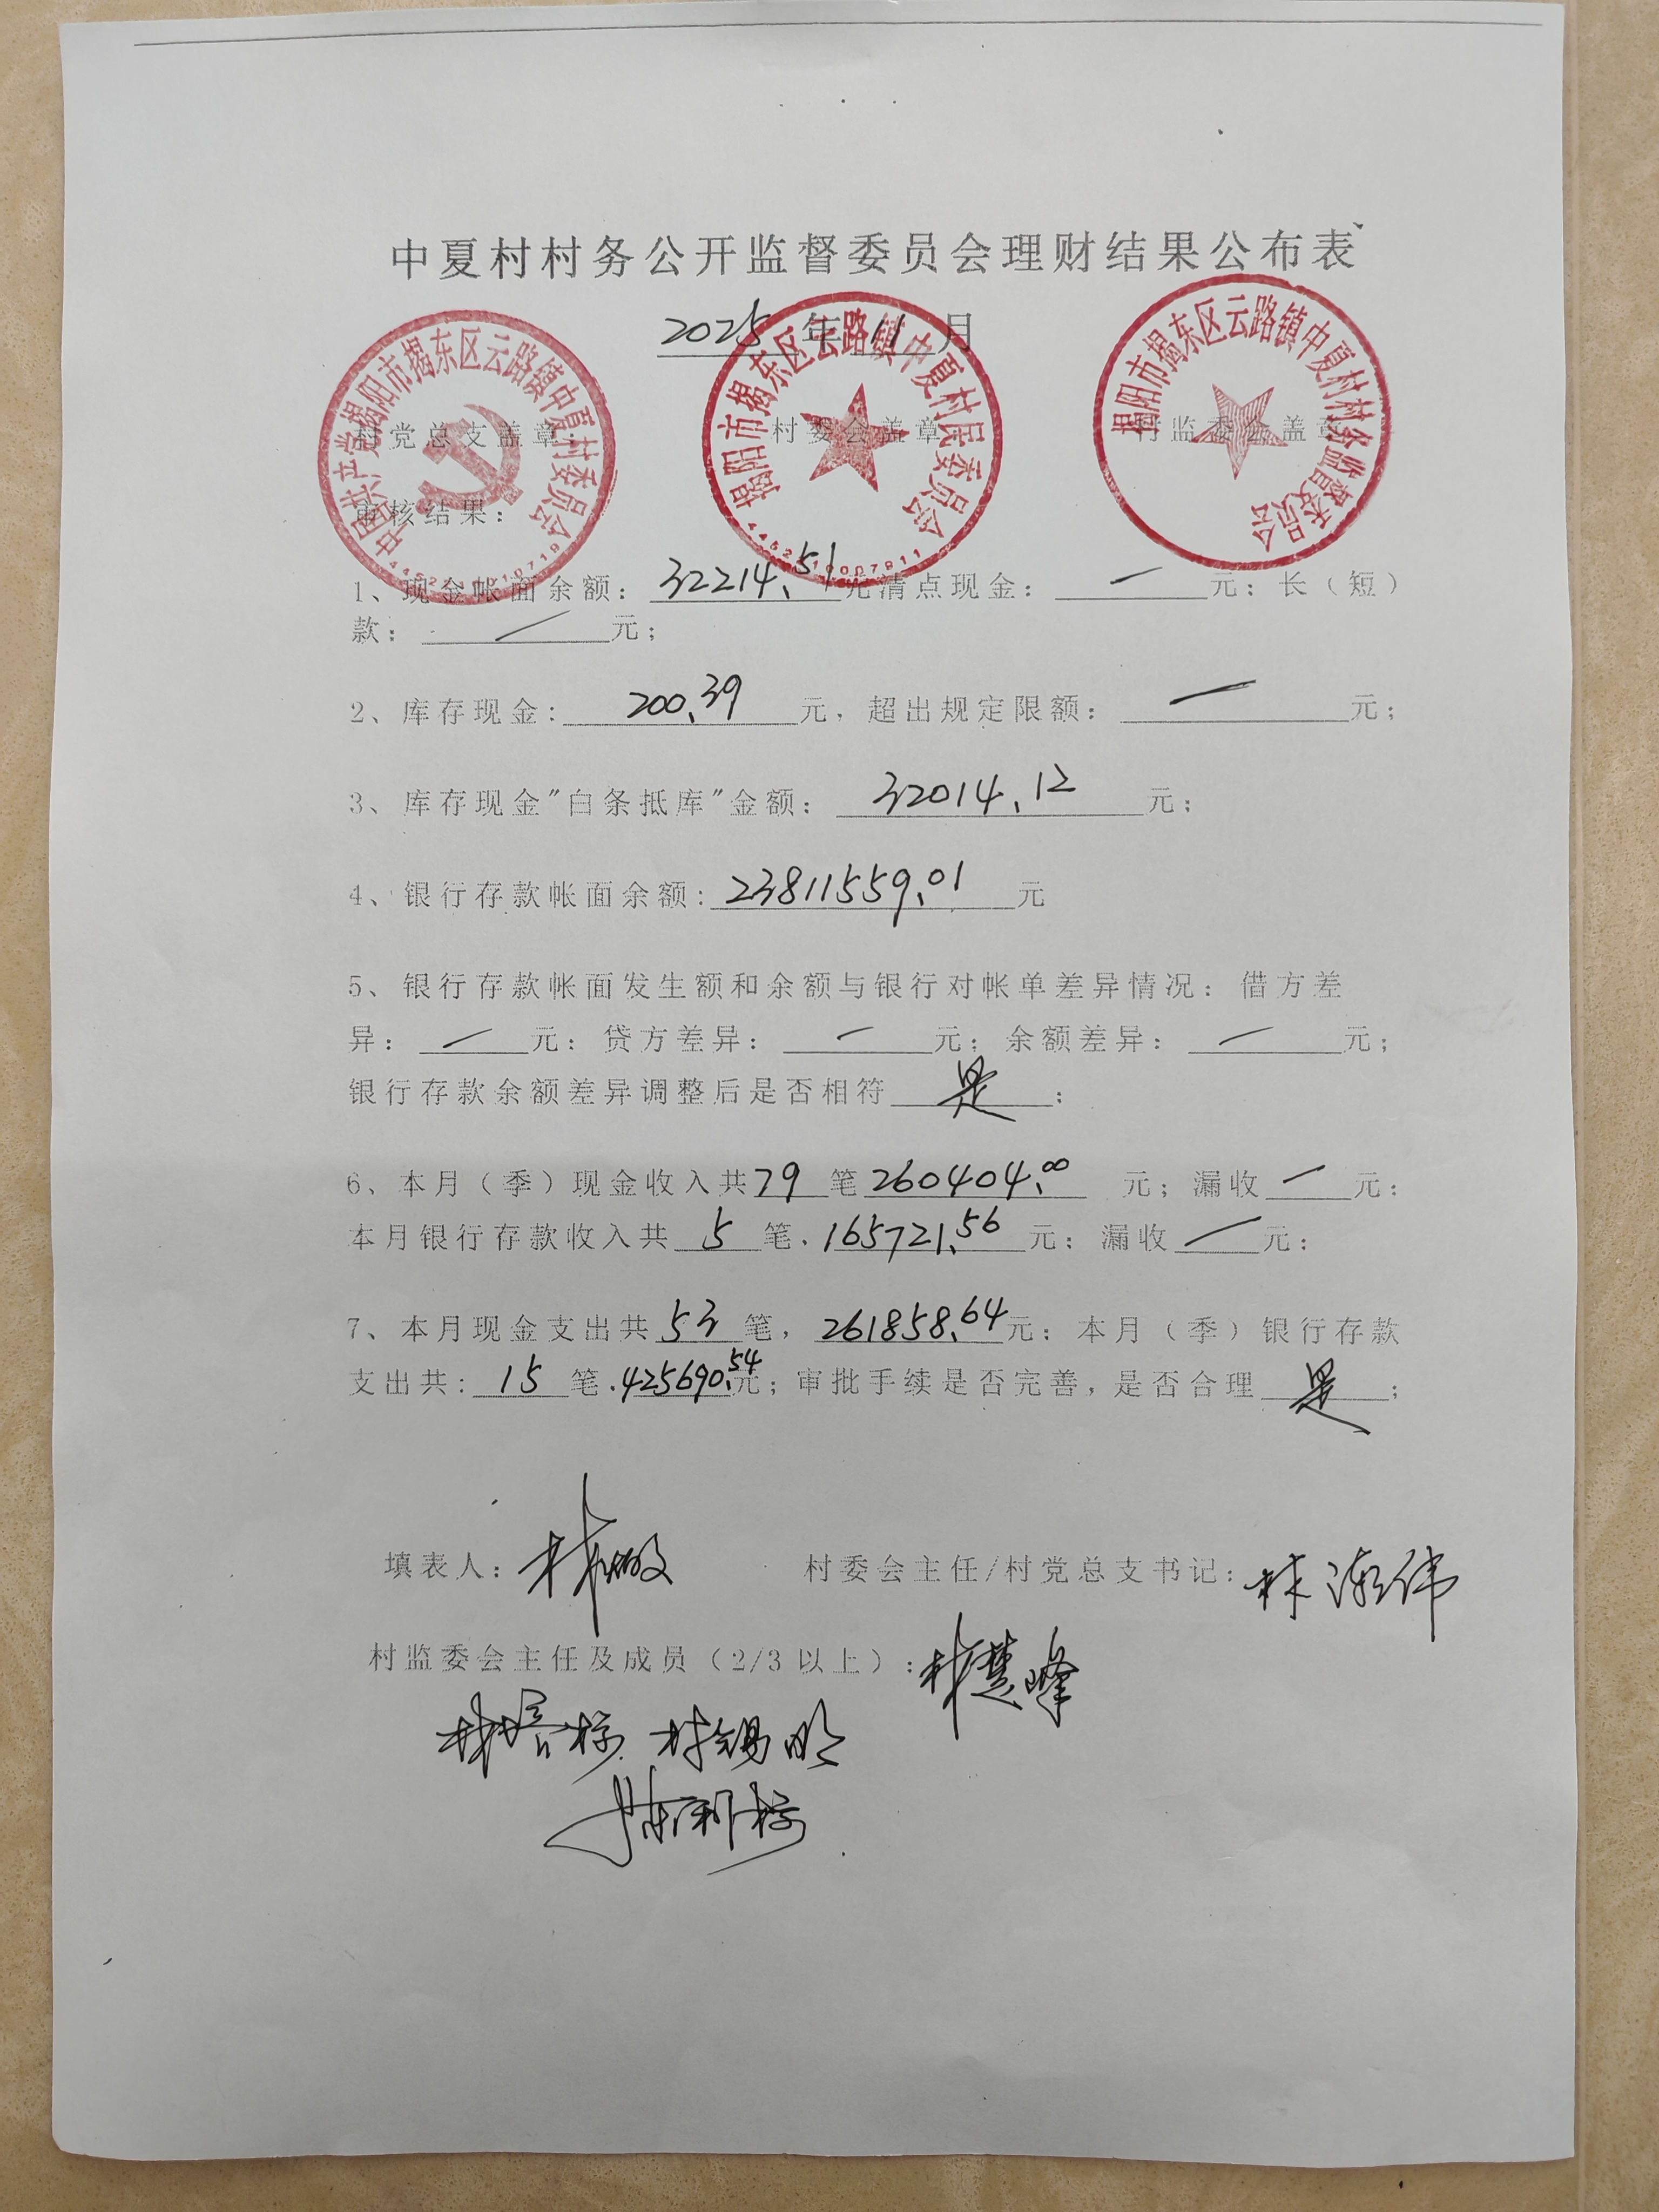 中夏村村务公开监督委员会理财结果公布表
2025年11月
中国共产党揭阳市揭东区云路镇中夏村委员会
揭阳市揭东区云路镇中夏村民委员会
揭阳市揭东区云路镇中夏村村务监督委员会
村党总支盖章: 村委会盖章 村监委会盖章
审核结果:
1、现金帐面余额: 32214.51元清点现金: 一 元; 长(短)
款: / 元;
2、库存现金: 200.39 元, 超出规定限额: 一 元;
3、库存现金"白条抵库"金额: 32014.12 元;
4、银行存款帐面余额: 23811559.01 元
5、银行存款帐面发生额和余额与银行对帐单差异情况: 借方差
异: 一 元: 贷方差异: 一 元; 余额差异: 一 元;
银行存款余额差异调整后是否相符 是 ;
6、本月(季)现金收入共 79 笔 260404.00 元; 漏收 一 元:
本月银行存款收入共 5 笔. 165721.56 元; 漏收 一 元;
7、本月现金支出共 53 笔, 261858.64元; 本月(季)银行存款
支出共: 15 笔.425690.54元; 审批手续是否完善, 是否合理 是 ;
填表人: 村委会主任/村党总支书记:
村监委会主任及成员(2/3以上): 林楚峰
林锡明